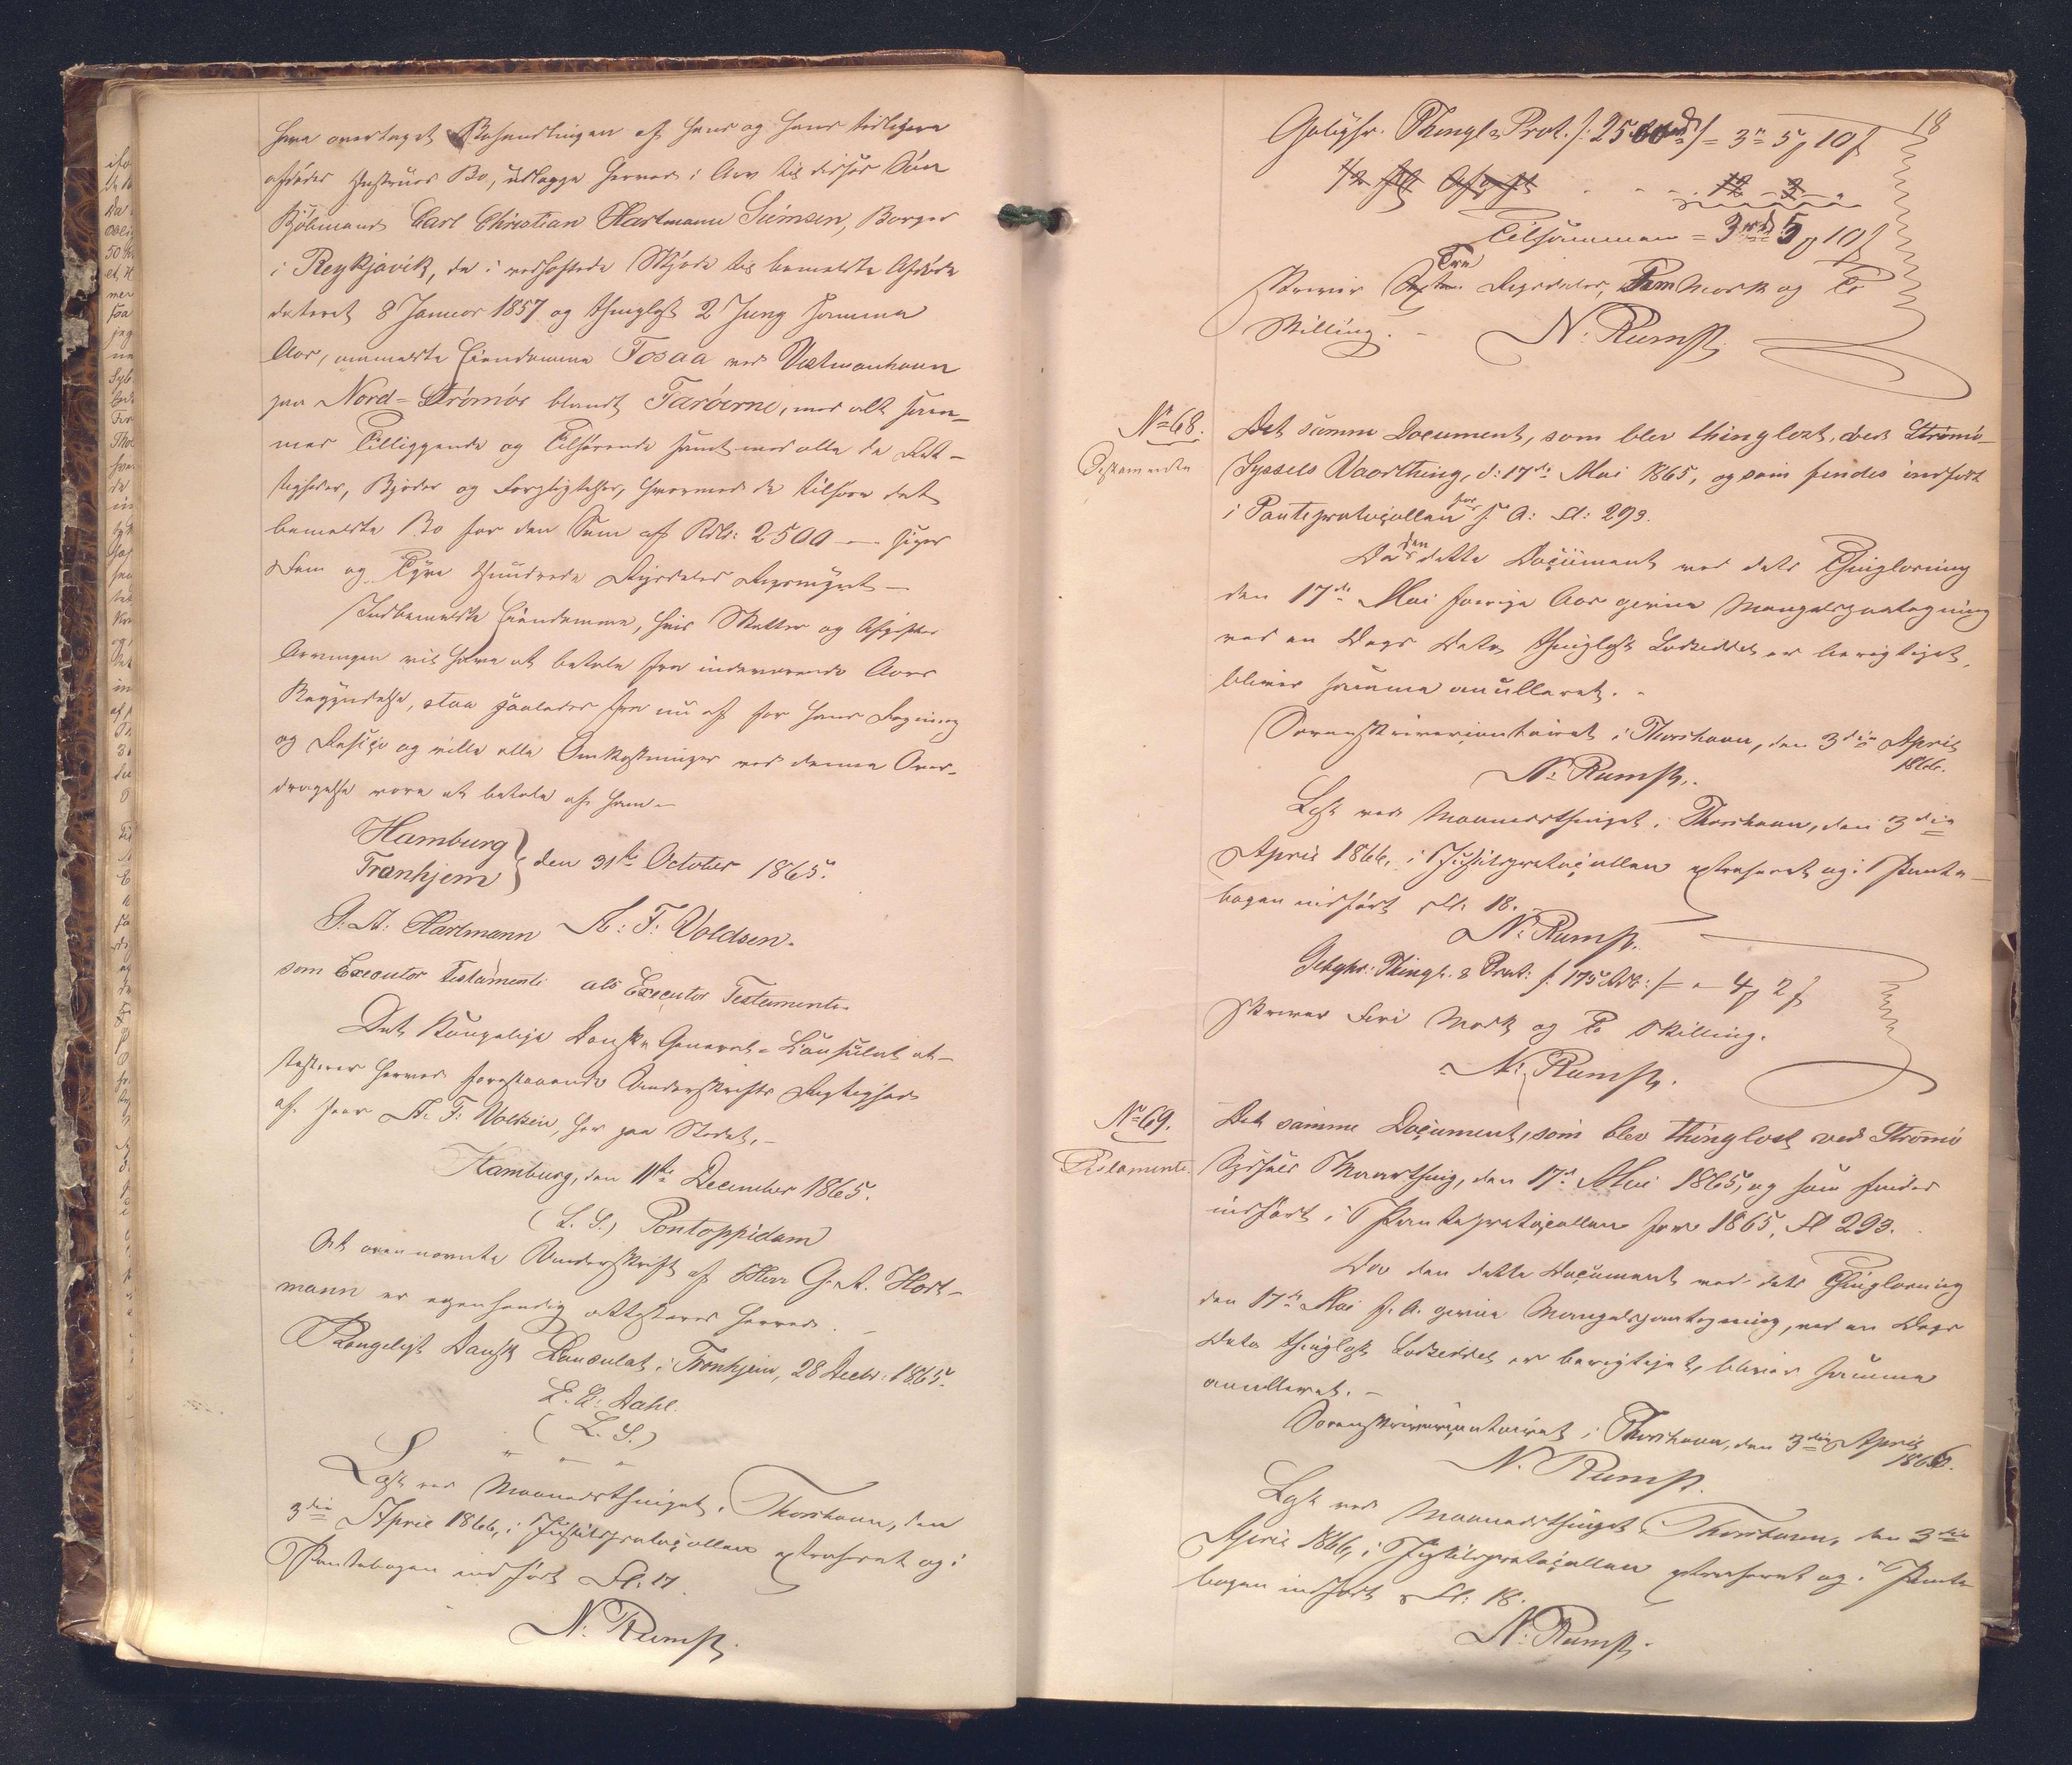 have overtaget Behandlingen af hans og hans tidligere
afdøde Hustrues Bo, udlægge herved i Arv til disses Søn
Kjøbmand Carl Christian Hartmann Siemsen, Borger
i Reykjavik, de i vedheftede Skjøde til bemeldte Afdøde
dateret 8 Januar 1857 og thinglyst 2 Juny samme
Aar, ommeldte Eiendomme Fosaa ved Vestmanhavn
paa Nord-Strömöe blandt Faröerne, med alt sam-
mes Tilliggende og Tilhørende samt med alle de Ret-
tigheder, Byrder og Forpligtelser, hvormed de tilhøre det
bemeldte Bo for den Sum af Rdlr: 2500 — siger
Fem og Tyve Hundrede Rigsdaler Rigsmynt —
Indbemeldte Eiendomme, hvis Skatter og Afgifter
Arvingen vil have at betale fra indeværende Aars
Begyndelse, staa saaledes fra nu af for hans Regning
og Risico og ville alle Omkostninger ved denne Over-
dragelse være at betale af ham.—
Hamburg
Tronhjem } den 31te October 1865.
G. A. Hartmann A: F: Woldsen.
som Executor Testamenti als Executor Testamenti
Det Kongelige Danske General-Consulat at-
testerer herved forestaaende Underskrifts Rigtighed
af Herr A. F: Woldsen, her paa Stedet.—
Hamburg, den 11te December 1865.
(L. S.) Pontoppidam
At ovennævnte Underskrift af Herr G. A. Hart-
mann er egenhændig attesteres herved. —
Kongeligt Dansk Consulat i Tronhjem, 28 Decbr: 1865.
E. A: Dahl.
(L. S.)
" " "
Læst ved Maanedsthinget i Thorshavn, den
3die April 1866, i Justitsprotocollen extraheret og i
Pantebogen indført Fl. 17.
N: Rumpf.
18
Gebyhr. Thingl & Prot. /: 2500rd /= 3rd 5 10
1/2 pCt Afgift . . . 12 3 "
Tilsammen = 3rd 5 10
Skriver Tre Rigsdaler, Fem Mark og Ti
Skilling. —
N: Rumpf.
No 68.
Testamente
Det samme Document, som blev thinglæst, ved Strömö
Syssels Vaarthing, d: 17de Mai 1865, og som findes indført
i Panteprotocollen for f A: Fl: 293.
Da den dette Document ved dets Thinglæsning
den 17de Mai forrige Aar givne Mangelspaategning
ved en Dags Dato thinglyst Lodseddel er berigtiget,
bliver samme anulleret. -
Sorenskrivercontoiret i Thorshavn, den 3die April
1866.
N: Rumpf.
Læst ved Maanedsthinget i Thorshavn, den 3die
April 1866, i Justitsprotocollen extraheret og i Pante-
bogen indført Fl. 18.
N: Rumpf.
Gebyhr: Thingl. & Prot: /: 175 Rd: /= " 4 2
Skriver Fire Mark og To Skilling.
N: Rumpf.
No 69.
Testamente.
Det samme Document, som blev thinglæst ved Strömö
Syssels Vaarthing, den 17de Mai 1865, og som findes
indført i Panteprotocollen for 1865, Fl 293.
Da den dette Document ved dets Thinglæsning
den 17de Mai f. A. givne Mangelspaategning, ved en Dags
Dato thinglyst Lodseddel er berigtiget, bliver samme
anulleret. —
Sorenskrivercontoiret i Thorshavn, den 3die April
1866.
N. Rumpf.
Læst ved Maanedsthinget i Thorshavn, den 3die
April 1866, i Justitsprotocollen extraheret og i Pante-
bogen indført Fl: 18.
N: Rumpf.